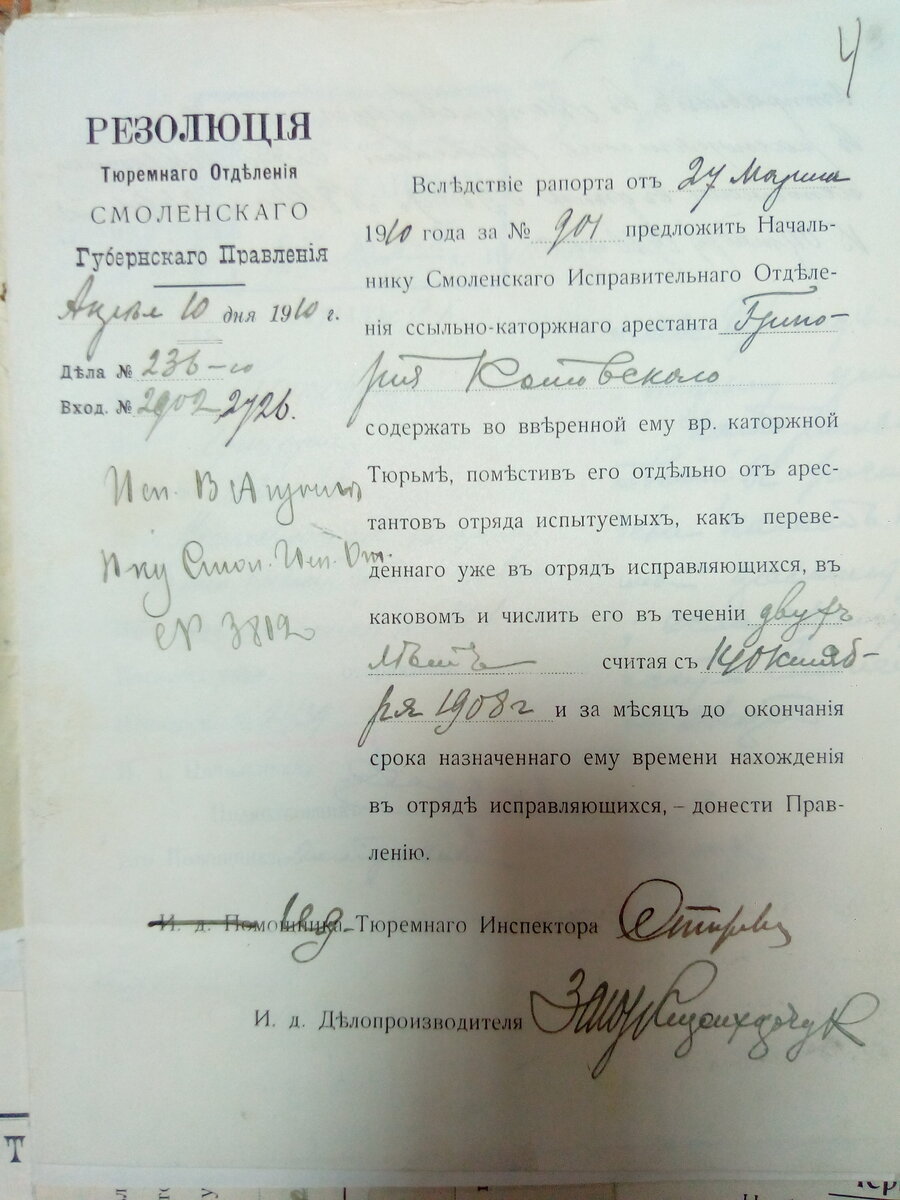 4
РЕЗОЛЮЦІЯ
Тюремнаго Отдѣленія
СМОЛЕНСКАГО
Губернскаго Правленія
Апрѣля 10 дня 1910 г.
Дѣла № 236-
Вход. № 2902 2726.
Исп. В
Н-ку Смол. Исп. От.
№ 3812
Вслѣдствіе рапорта отъ 27 Марта
1910 года за № 901 предложить Началь-
нику Смоленскаго Исправительнаго Отдѣле-
нія ссыльно-каторжнаго арестанта Григо-
рія Котовскаго
содержать во ввѣренной ему вр. каторжной
Тюрьмѣ, помѣстивъ его отдѣльно отъ арес-
тантовъ отряда испытуемыхъ, какъ переве-
деннаго уже въ отрядъ исправляющихся, въ
каковомъ и числить его въ теченіи двухъ
лѣтъ считая съ 14 Октяб-
ря 1908 г и за мѣсяцъ до окончанія
срока назначеннаго ему времени нахожденія
въ отрядѣ исправляющихся, – донести Прав-
ленію.
И. д. Помощника И д. Тюремнаго Инспектора
И. д. Дѣлопроизводителя
Т